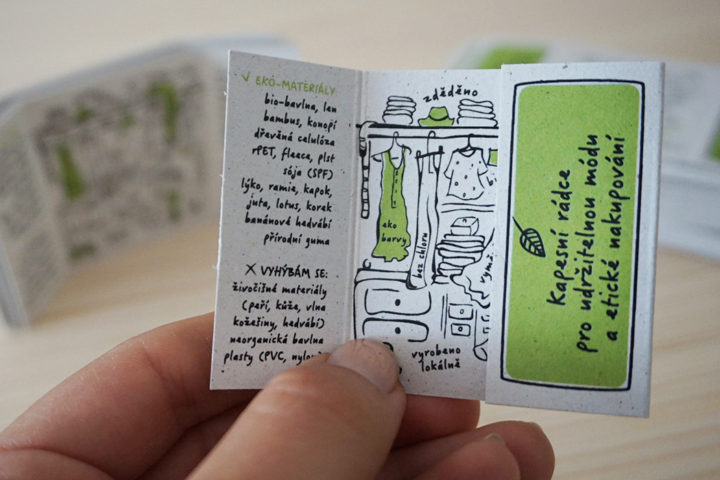 √ EKO-MATERIÁLY:
bio-bavlna, len
bambus, konopí
dřevěná celulóza
rPET, fleece, plst
sója (SPF)
lýko, ramie, kapok,
juta, lotus, korek
banánové hedvábí
přírodní guma
X VYHÝBÁM SE:
živočišné materiály
(peří, kůže, vlna
kožešiny, hedvábí)
neorganická bavlna
plasty (PVC,
zděděno
eko
barvy
bez chloru
vyrobeno
lokálně
Kapesní rádce
pro udržitelnou módu
a etické nakupování